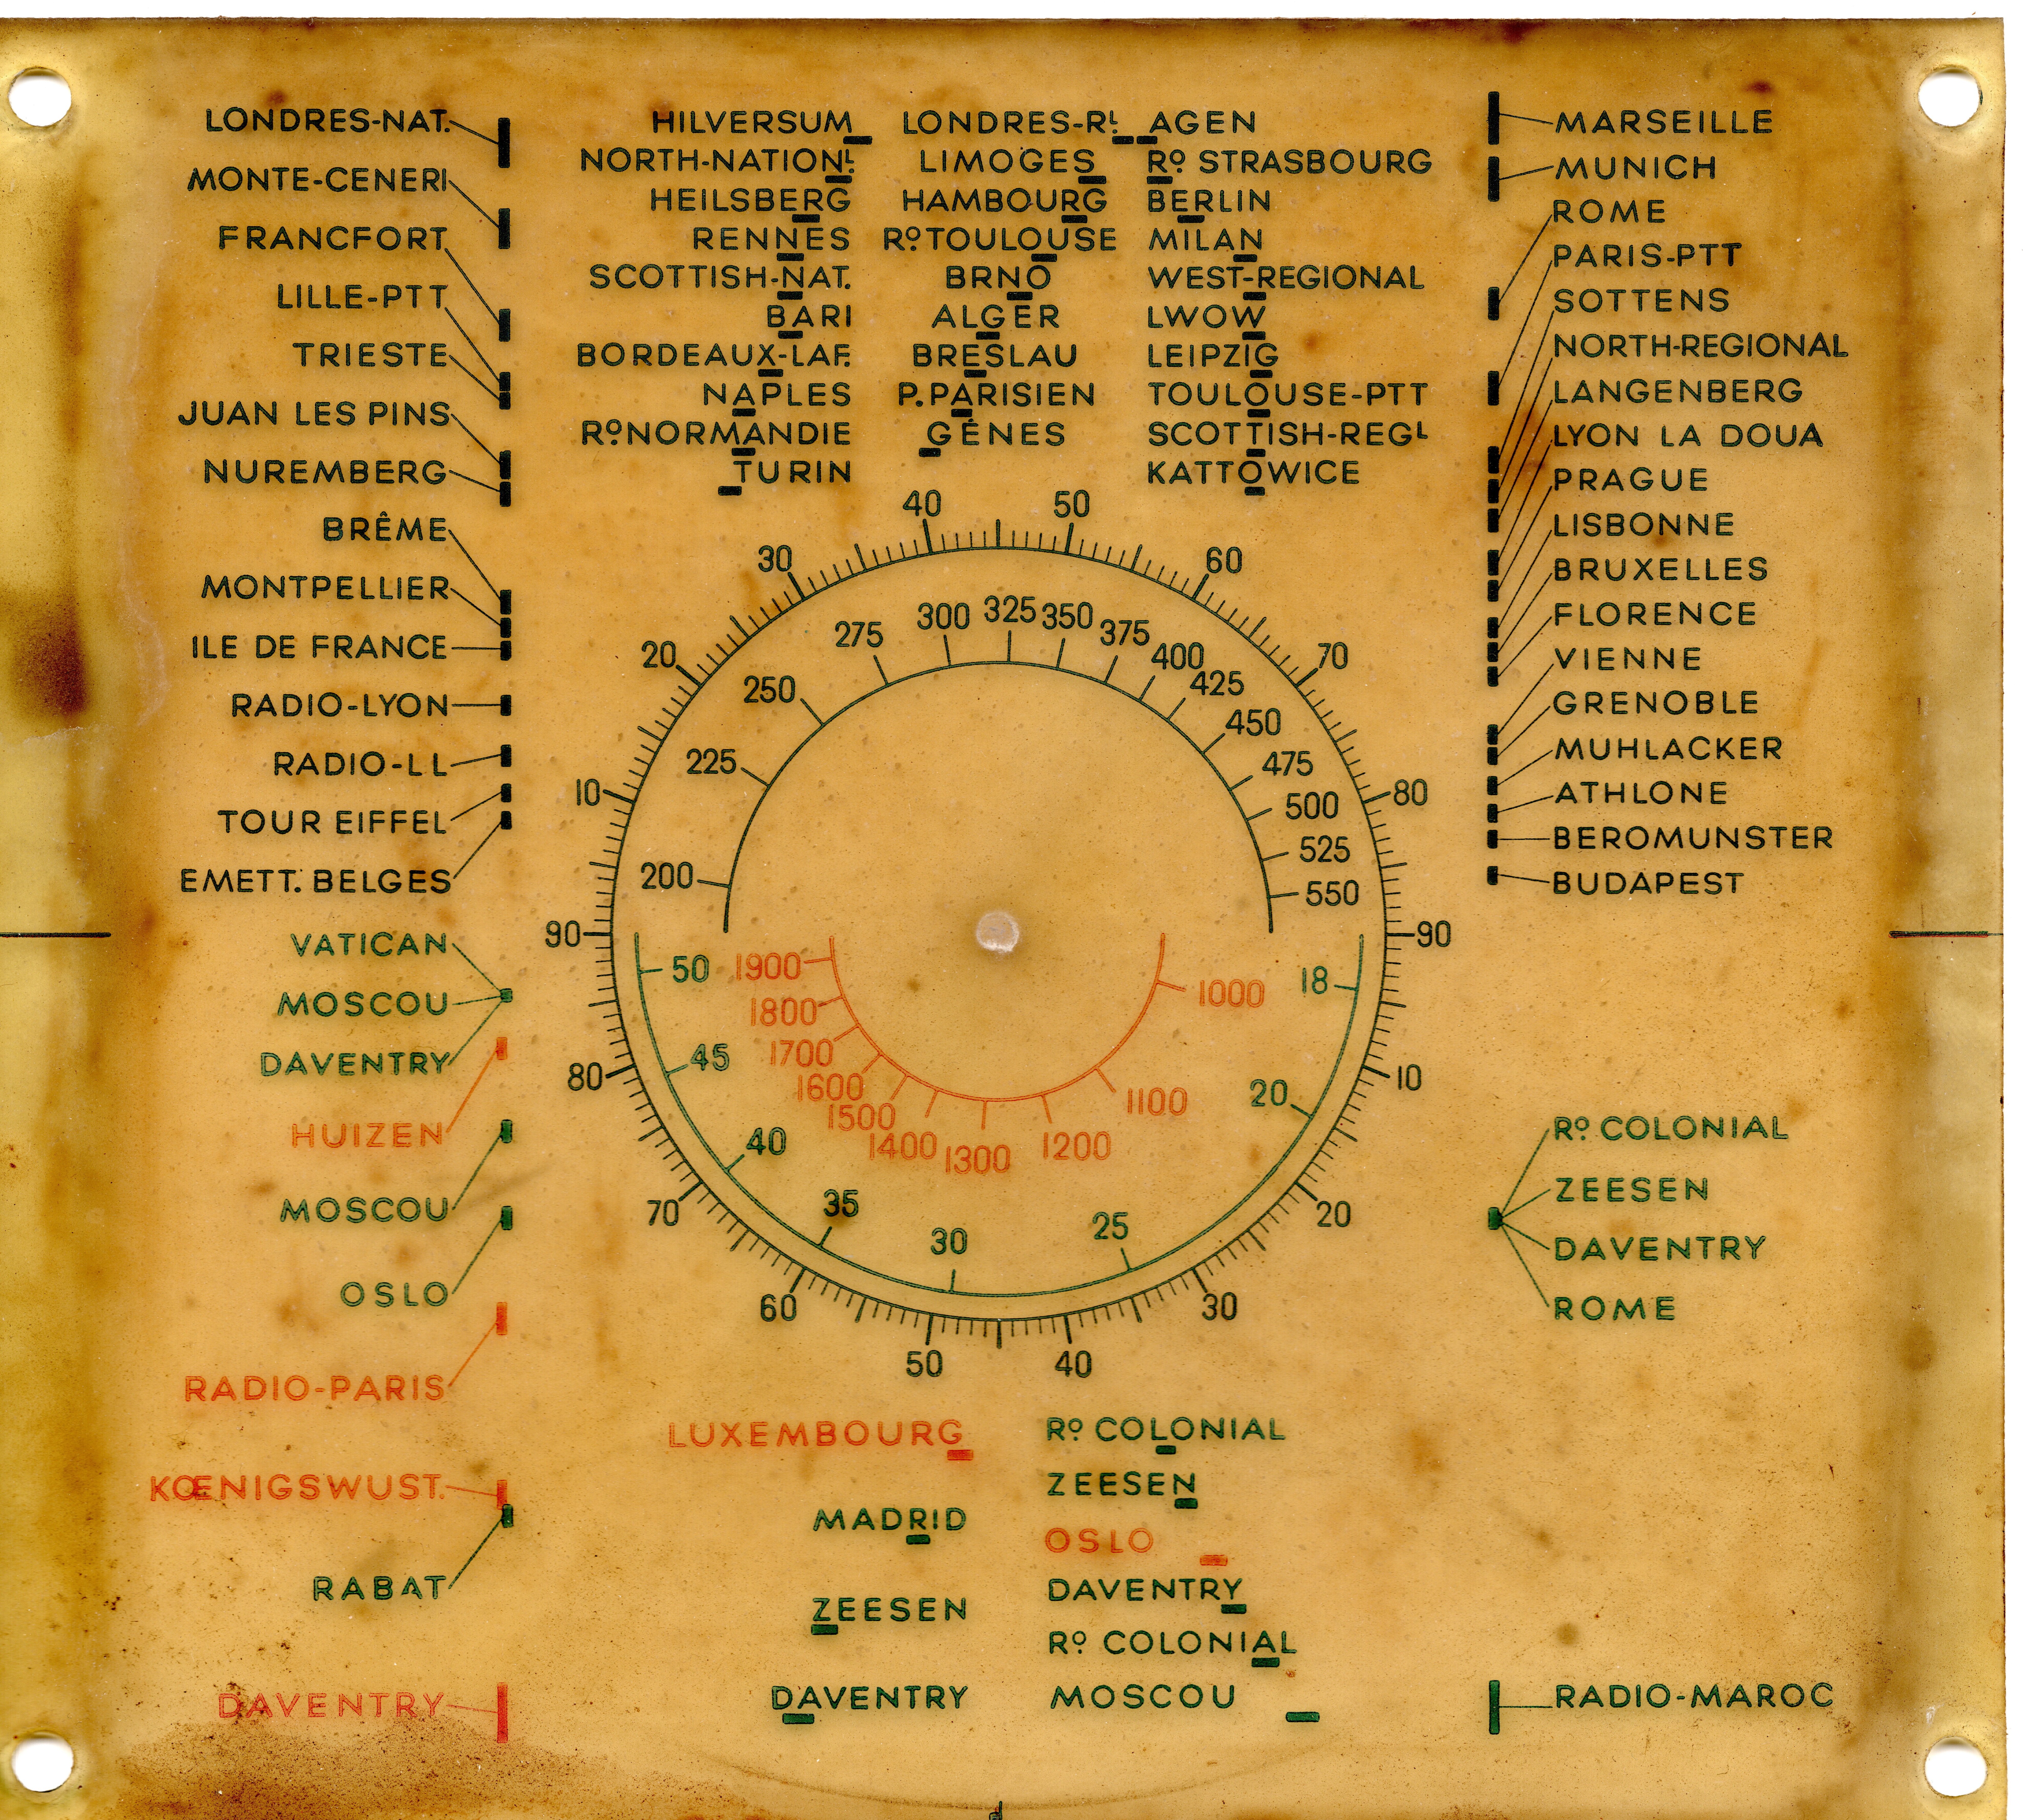 LONDRES-NAT.
MONTE-CENERI
FRANCFORT
LILLE-PTT
TRIESTE
JUAN LES PINS
NUREMBERG
BRÊME
MONTPELLIER
ILE DE FRANCE
RADIO-LYON
RADIO-LL
TOUR EIFFEL
EMETT. BELGES
VATICAN
MOSCOU
DAVENTRY
HUIZEN
MOSCOU
OSLO
RADIO-PARIS
KŒNIGSWUST.
RABAT
DAVENTRY
HILVERSUM
NORTH-NATIONL
HEILSBERG
RENNES
SCOTTISH-NAT.
BARI
BORDEAUX-LAF.
NAPLES
RO NORMANDIE
TURIN
LONDRES-RL
LIMOGES
HAMBOURG
RO TOULOUSE
BRNO
ALGER
BRESLAU
P.PARISIEN
GÊNES
AGEN
RO STRASBOURG
BERLIN
MILAN
WEST-REGIONAL
LWOW
LEIPZIG
TOULOUSE-PTT
SCOTTISH-REGL
KATTOWICE
10
20
30
40
50
60
70
80
90
200
225
250
275
300
325
350
375
400
425
450
475
500
525
550
90
80
70
60
50
40
30
20
10
50
45
40
35
30
25
20
18
1900
1800
1700
1600
1500
1400
1300
1200
1100
1000
LUXEMBOURG
MADRID
ZEESEN
DAVENTRY
RO COLONIAL
ZEESEN
OSLO
DAVENTRY
RO COLONIAL
MOSCOU
MARSEILLE
MUNICH
ROME
PARIS-PTT
SOTTENS
NORTH-REGIONAL
LANGENBERG
LYON LA DOUA
PRAGUE
LISBONNE
BRUXELLES
FLORENCE
VIENNE
GRENOBLE
MUHLACKER
ATHLONE
BEROMUNSTER
BUDAPEST
RO COLONIAL
ZEESEN
DAVENTRY
ROME
RADIO-MAROC